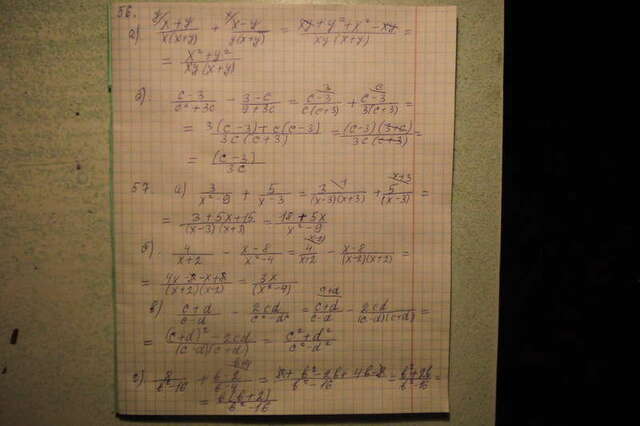 56.
а). y/ (x+y)/(x(x+y)) + x/ (x-y)/(y(x+y)) = (xy+y²+x²-xy)/(xy(x+y)) =
= (x²+y²)/(xy(x+y))
(c-3)/(c²+3c) - (3-c)/(9+3c) = (c-3)/(c(c+3)) + (c-3)/(3(c+3)) =
= (3(c-3)+c(c-3))/(3c(c+3)) = ((c-3)(3+c))/(3c(c+3)) =
= (c-3)/(3c)
57. а) 3/(x²-9) + 5/(x-3) = 3/((x-3)(x+3)) + 5/(x-3) =
= (3+5x+15)/((x-3)(x+3)) = (18+5x)/(x²-9)
б). 4/(x+2) - (x-8)/(x²-4) = 4/(x+2) - (x-8)/((x-2)(x+2)) =
= 3x/(x²-4)
в) (c+d)/(c-d) - 2cd/(c²-d²) = (c+d)/(c-d) - 2cd/((c-d)(c+d)) =
= ((c+d)²-2cd)/((c-d)(c+d)) = (c²+d²)/(c²-d²)
= (b²+2b)/(b²-16) =
= b(b+2)/(b²-16)